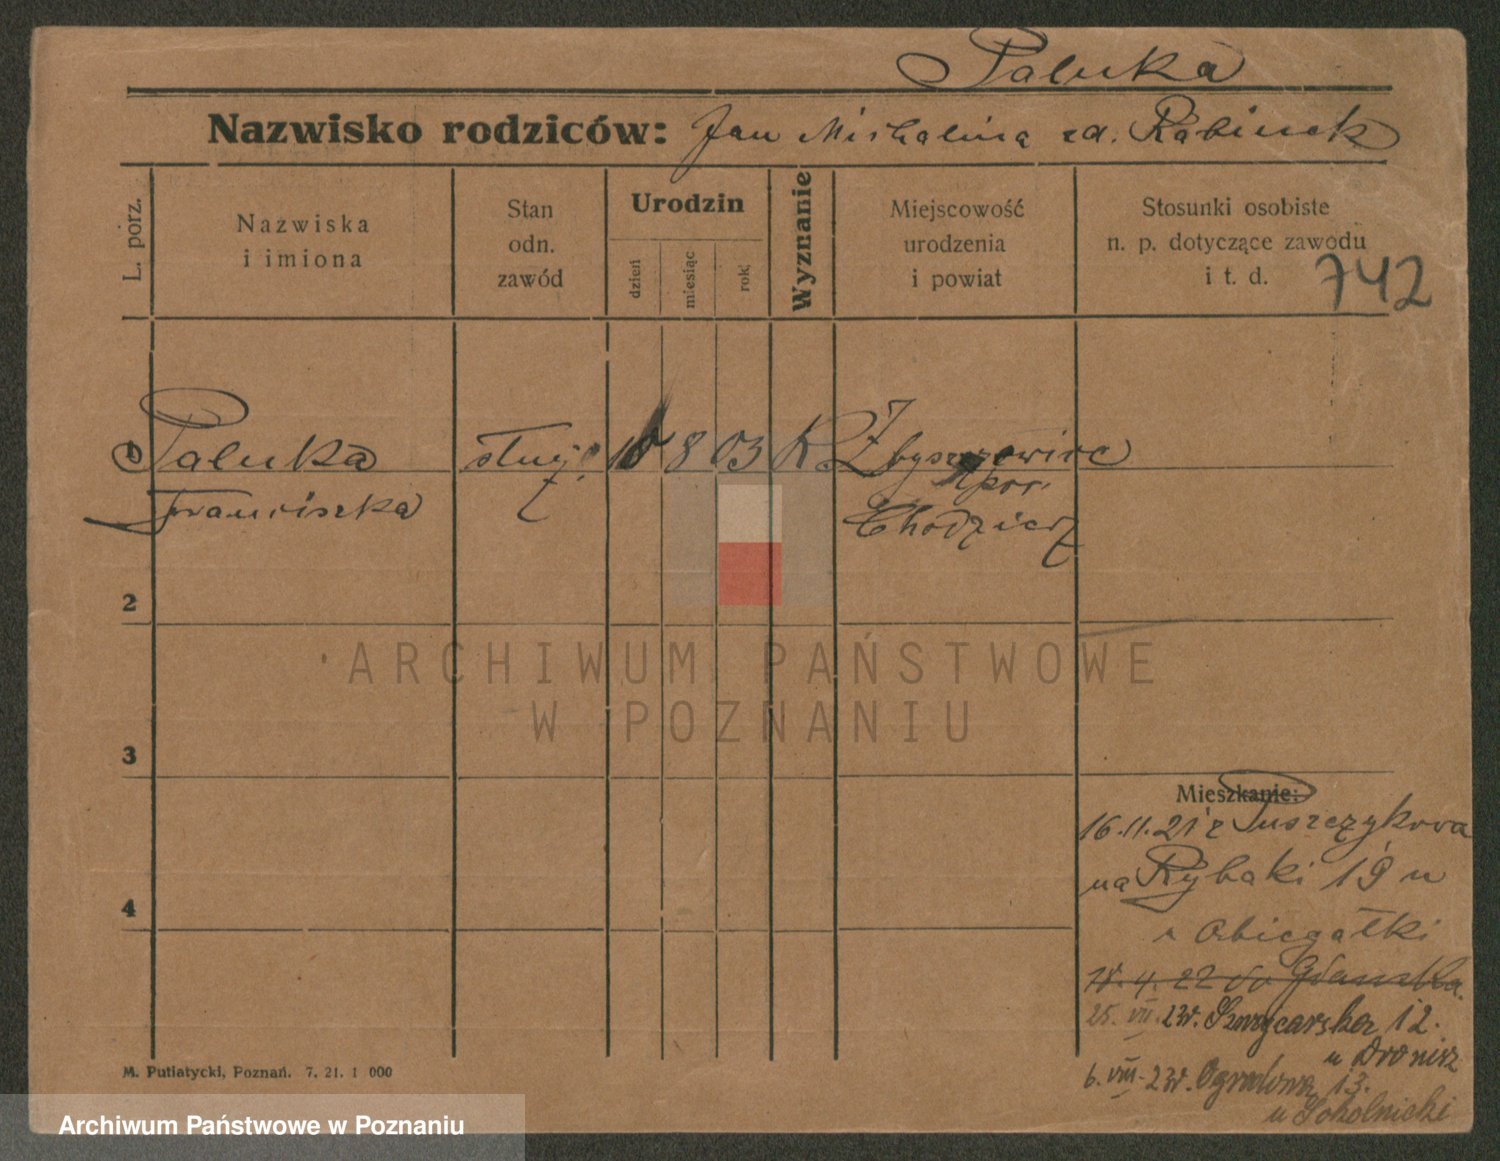 Paluka
Nazwisko rodziców: Jan Michalina zd. Rabinek
L. porz.
Nazwiska
i imiona
Stan
odn.
zawód
Urodzin
dzień
miesiąc
rok
Wyznanie
Miejscowość
urodzenia
i powiat
Stosunki osobiste
n. p. dotyczące zawodu
i t. d.
742
1 Paluka służ. 8 03 K. Zbyszewice
Franciszka pow.
Chodzież
2
3
4
ARCHIWUM PAŃSTWOWE
W POZNANIU
Mieszkanie:
16.11.21 z Puszczykowa
na Rybaki 19 u
Obiegałki
18.4.22 do Gdańska.
25. VII. 23r. Szwajcarska 12.
u Dronisz
6. VIII. 23r. Ogrodowa 13.
u Sokolnicki
M. Putiatycki, Poznań. 7. 21. 1 000
Archiwum Państwowe w Poznaniu